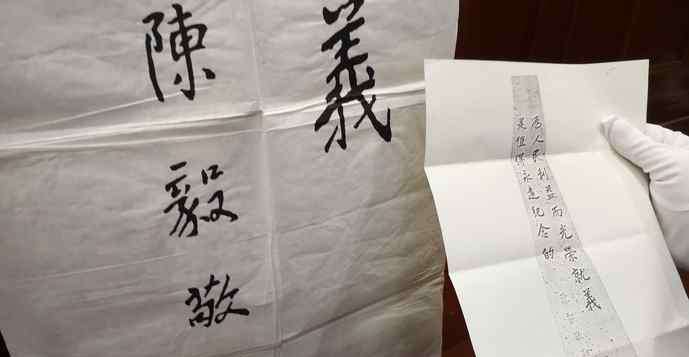 義
陳毅敬
为人民利益而光荣就義
是值得永遠纪念的